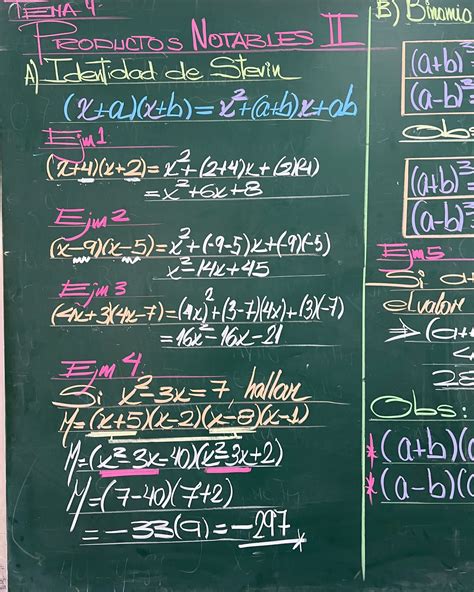 TEMA 4:
PRODUCTOS NOTABLES II
A) Identidad de Stevin
(x+a)(x+b)=x²+(a+b)x+ab
Ejm 1
(x+4)(x+2)=x²+(2+4)x+(2)(4)
=x²+6x+8
Ejm 2
(x-9)(x-5)=x²+(-9-5)x+(-9)(-5)
x²-14x+45
Ejm 3
(4x+3)(4x-7)=(4x)²+(3-7)(4x)+(3)(-7)
=16x²-16x-21
Ejm 4.
Si x²-3x=7, hallar
M=(x+5)(x-2)(x-8)(x-1)
M=(x²-3x-40)(x²-3x+2)
M=(7-40)(7+2)
=-33(9)=-297
B) Binomio
(a+b)³
(a-b)³
Ob
(a+b)³=
(a-b)³
Ejm 5
Si a+
el valor
(a+
28
Obs:
*(a+b)(
*(a-b)(